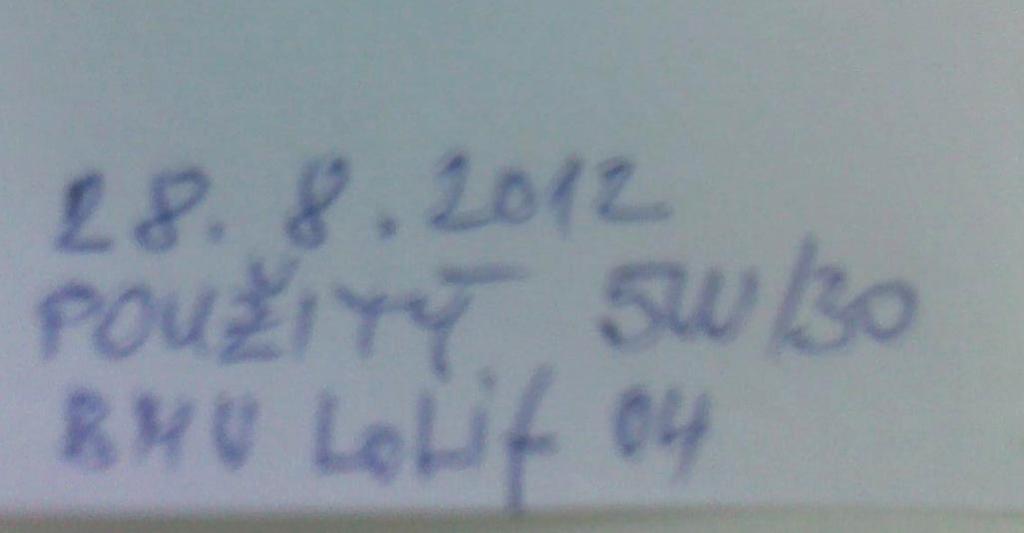 28. 8. 2012
POUŽITÝ 5W/30
LoLif 04